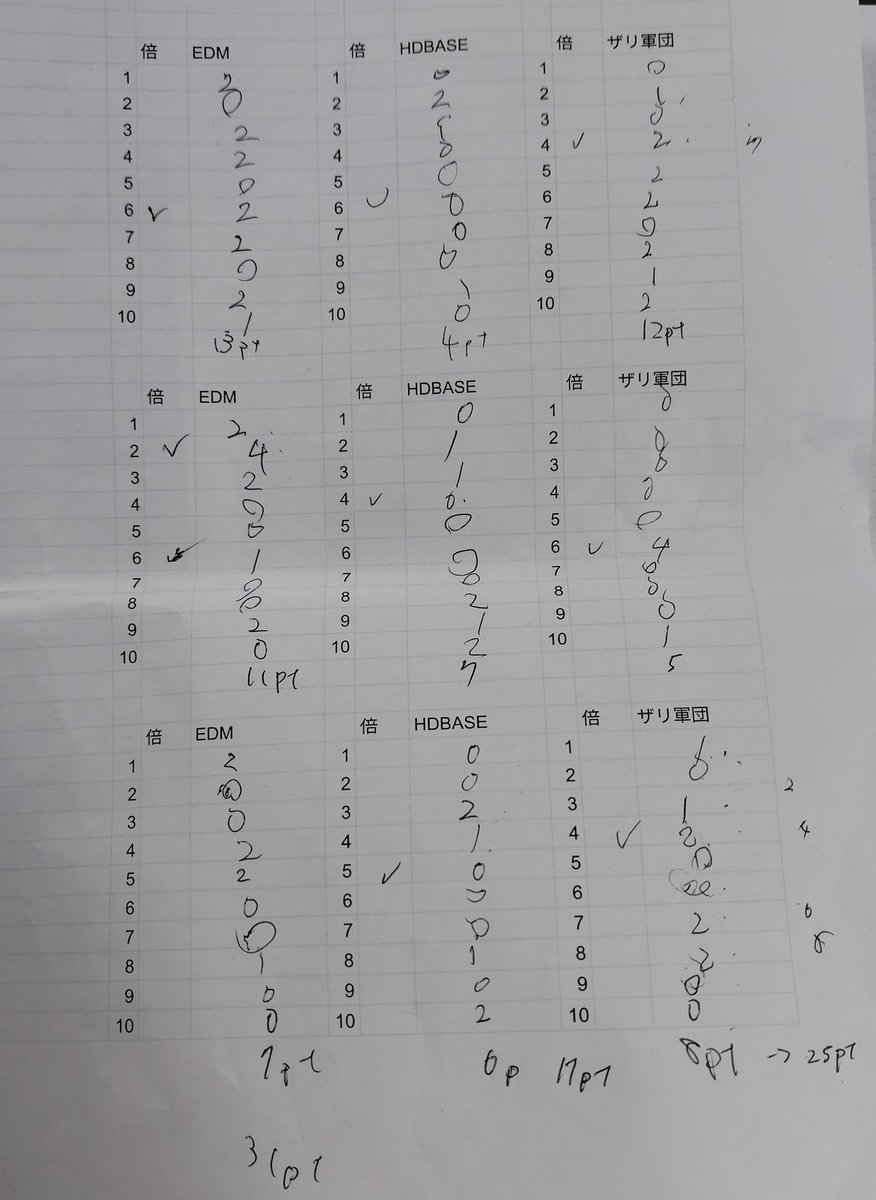 倍 EDM 倍 HDBASE 倍 ザリ軍団
1 1 0 1 0
2 0 2 2 2 1
3 2 3 3 0
4 2 4 0 4 ✓ 2
5 0 5 0 5 2
6 ✓ 2 6 ✓ 0 6 2
7 2 7 0 7 0
8 0 8 0 8 2
9 2 9 1 9 1
10 1 10 0 10 2
13pt 4pt 12pt
倍 EDM 倍 HDBASE 倍 ザリ軍団
1 2 1 0 1 0
2 ✓ 4 2 1 2 0
3 2 3 1 3 0
4 0 4 ✓ 0 4 0
5 0 5 0 5 0
6 ✓ 1 6 0 6 ✓ 4
7 0 7 0 7 0
8 0 8 2 8 0
9 2 9 1 9 0
10 0 10 2 10 1
11pt 7 5
倍 EDM 倍 HDBASE 倍 ザリ軍団
1 2 1 0 1 1
2 2 0 2 0
3 0 3 2 3 1
4 2 4 1 4 ✓ 2
5 2 5 ✓ 0 5 0
6 0 6 0 6
7 7 0 7 2
8 1 8 1 8 2
9 0 9 0 9 0
10 0 10 2 10 0
7pt 6p 17pt 8pt → 25pt
31pt